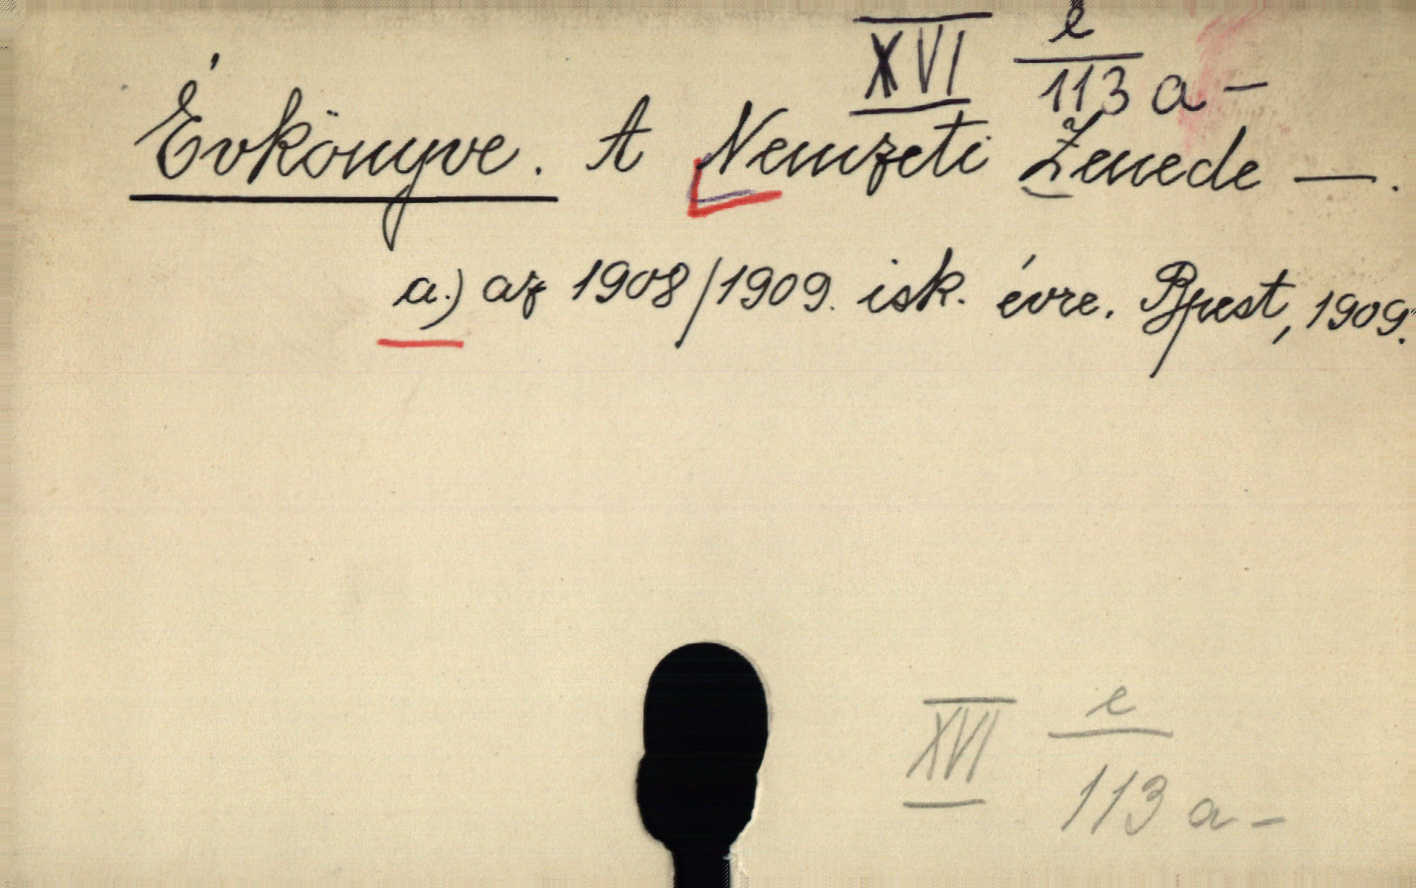 XVI e/113 a-
Évkönyve. A Nemzeti Zenede —.
a.) az 1908/1909. isk. évre. Bpest, 1909.
XVI e/113 a-